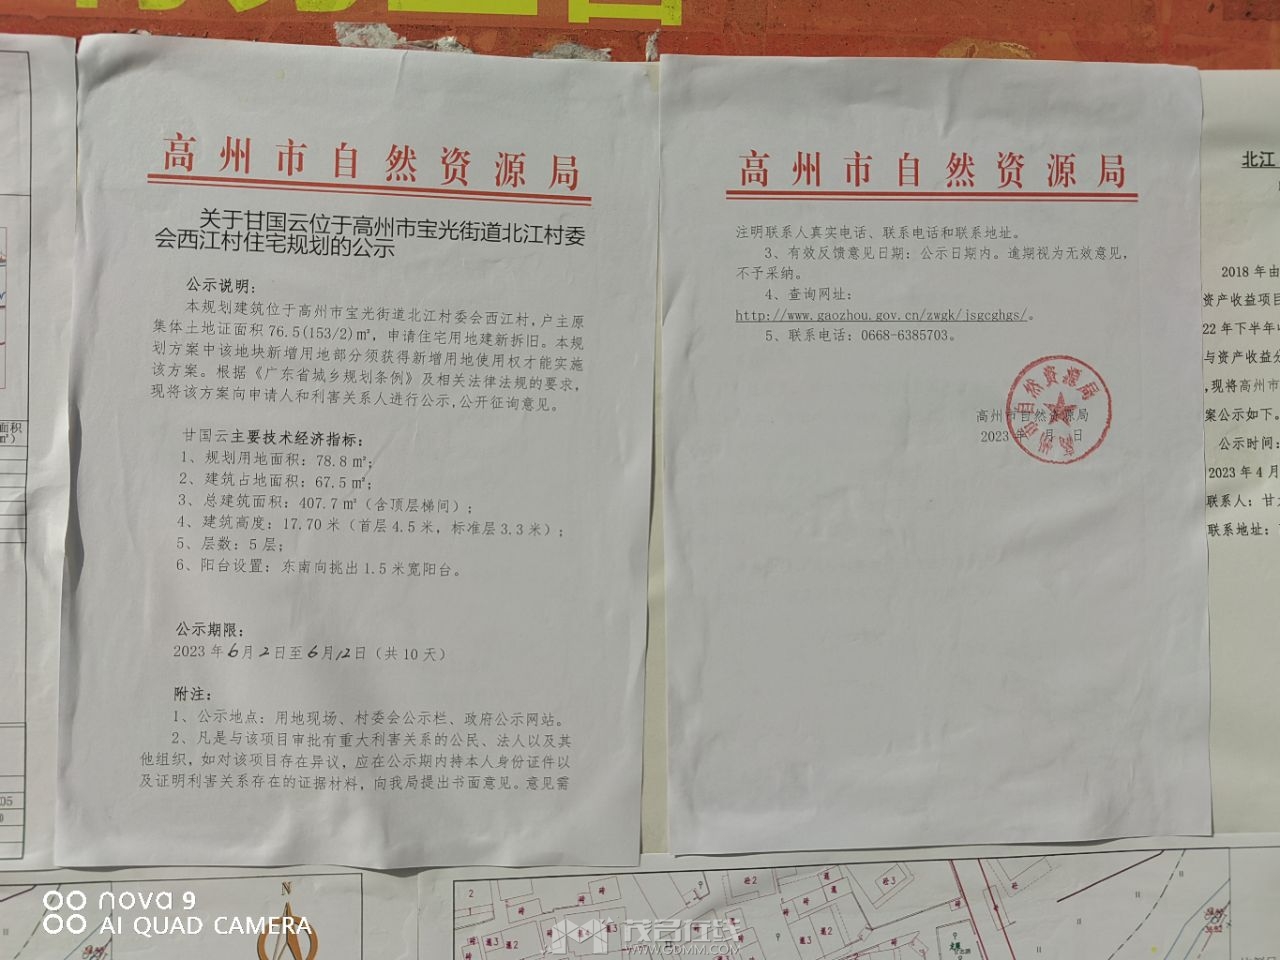 高州市自然资源局
关于甘国云位于高州市宝光街道北江村委
会西江村住宅规划的公示
公示说明：
本规划建筑位于高州市宝光街道北江村委会西江村，户主原
集体土地证面积 76.5(153/2)㎡，申请住宅用地建新拆旧。本规
划方案中该地块新增用地部分须获得新增用地使用权才能实施
该方案。根据《广东省城乡规划条例》及相关法律法规的要求，
现将该方案向申请人和利害关系人进行公示，公开征询意见。
甘国云主要技术经济指标：
1、规划用地面积：78.8 ㎡；
2、建筑占地面积：67.5 ㎡；
3、总建筑面积：407.7 ㎡（含顶层梯间）；
4、建筑高度：17.70 米（首层 4.5 米，标准层 3.3 米）；
5、层数：5 层；
6、阳台设置：东南向挑出 1.5 米宽阳台。
公示期限：
2023 年 6 月 2 日至 6 月 12 日（共 10 天）
附注：
1、公示地点：用地现场、村委会公示栏、政府公示网站。
2、凡是与该项目审批有重大利害关系的公民、法人以及其
他组织，如对该项目存在异议，应在公示期内持本人身份证件以
及证明利害关系存在的证据材料，向我局提出书面意见。意见需
高州市自然资源局
注明联系人真实电话、联系电话和联系地址。
3、有效反馈意见日期：公示日期内。逾期视为无效意见，
不予采纳。
4、查询网址：
http://www.gaozhou.gov.cn/zwgk/jsgcghgs/。
5、联系电话：0668-6385703。
高州市自然资源局
2023 年 月 日
北江
2018 年由
资产收益项目
22 年下半年
与资产收益分
，现将高州市
案公示如下。
公示时间：
2023 年 4 月
联系人：甘
联系地址：
nova 9
AI QUAD CAMERA
N
茂名在线
WWW.GDMM.COM